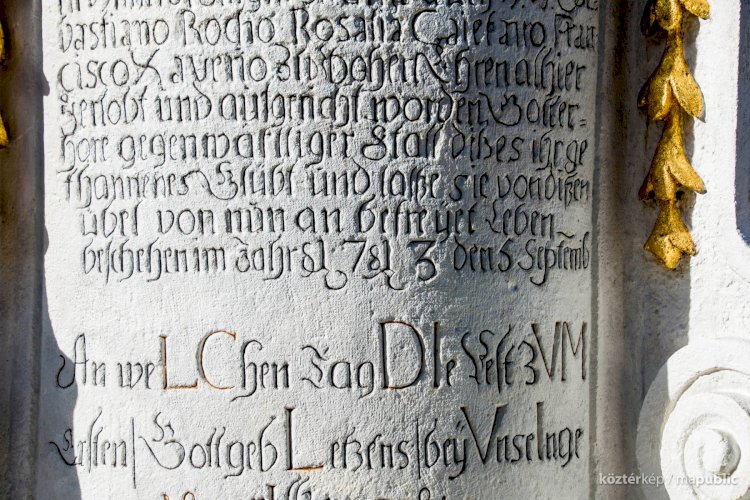 vastiano Rocho Rosalia Caietano Fran
cisco Xaverio zu hohen Ehren alhier
verlobt und aufgericht worden Gott er=
höre gegenwärttiger Statt dißes ihr ge
thannenes Glübt und laße sie von dißen
übel von nŭn an befreyet Leben
beschehen im Jahr 1713 den 5 Septemb
An weLChen Tag DIe Pest zVM
Lasten / Gott geb Letzens / beÿ VnseInge
köztérkép / mapublic